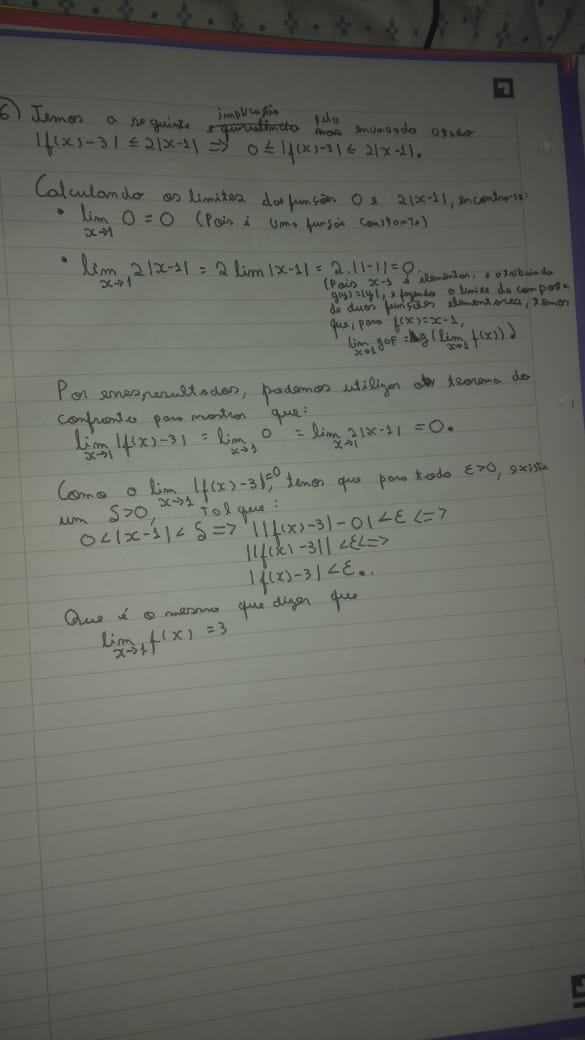 6) Temos a seguinte implicação pelo enunciado
|f(x)-3| ≤ 2|x-1| => 0 ≤ |f(x)-3| ≤ 2|x-1|.
Calculando os limites das funções 0 e 2|x-1|, encontra-se:
• lim x→1 0 = 0 (Pois é uma função constante)
• lim x→1 2|x-1| = 2 lim |x-1| = 2.|1-1| = 0.
(Pois x-1 é elementar, e atribuindo
g(y)=|y|, e fazendo o limite da composta
de duas funções elementares, temos
que, para f(x)=x-1,
lim x→1 gof = g(lim x→1 f(x)))
Por esses resultados, podemos utilizar o teorema do
confronto para mostrar que:
lim x→1 |f(x)-3| = lim x→1 0 = lim x→1 2|x-1| = 0.
Como o lim x→1 |f(x)-3|=0, temos que para todo ε>0, existe
um δ>0, tal que:
0<|x-1|<δ => ||f(x)-3|-0|<ε <=>
||f(x)-3||<ε <=>
|f(x)-3|<ε.
Que é o mesmo que dizer que
lim x→1 f(x) = 3